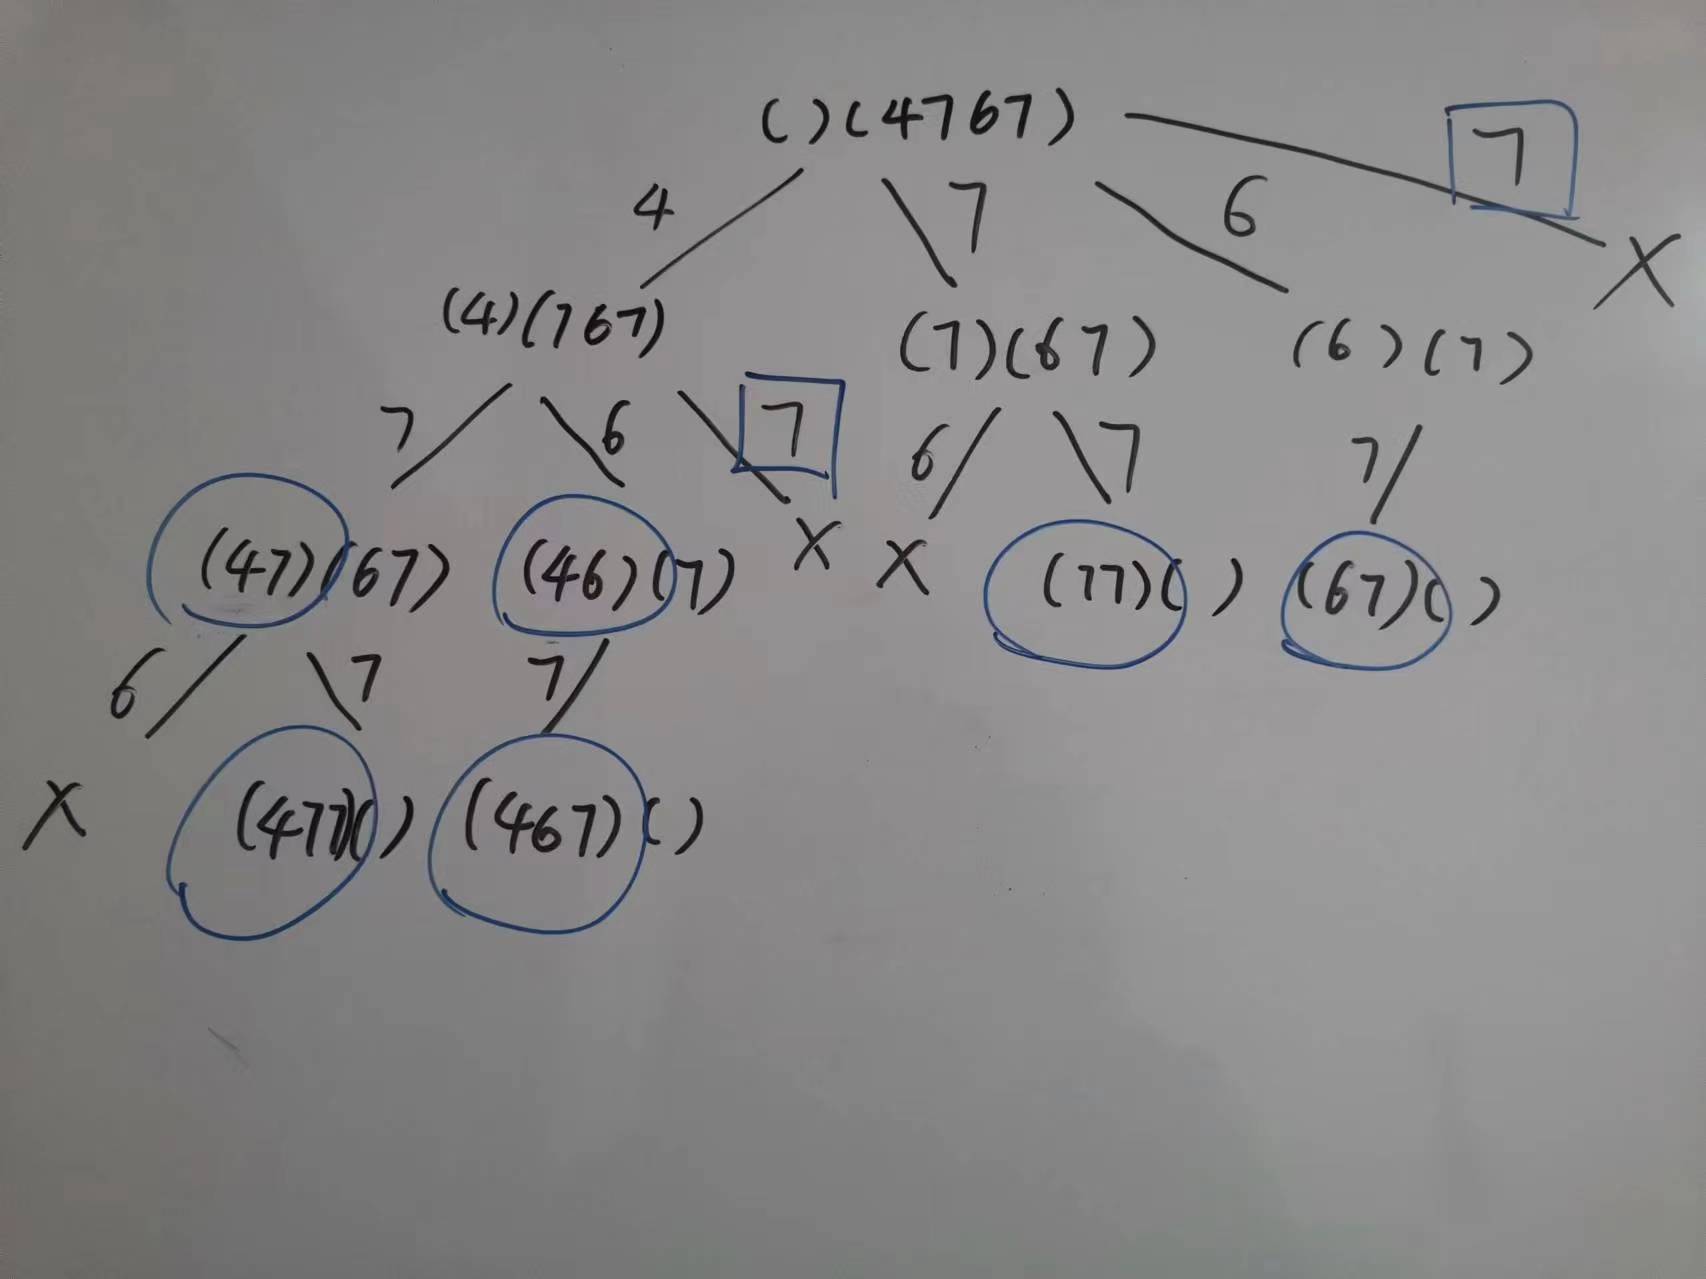 ()(4767)
4 7 6 7
X
(4)(767) (7)(67) (6)(7)
7 6 7 6 7 7
(47)(67) (46)(7) X X (77)() (67)()
6 7 7
X (477)() (467)()